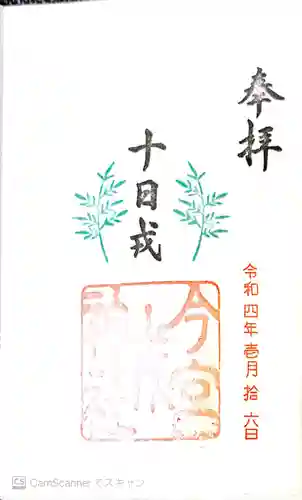 奉拝
十日戎
令和四年壱月拾六日
今宮
CS CamScanner でスキャン